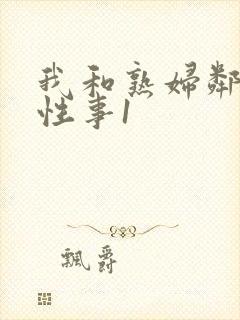 我和熟妇鄰
性事1
飄爵